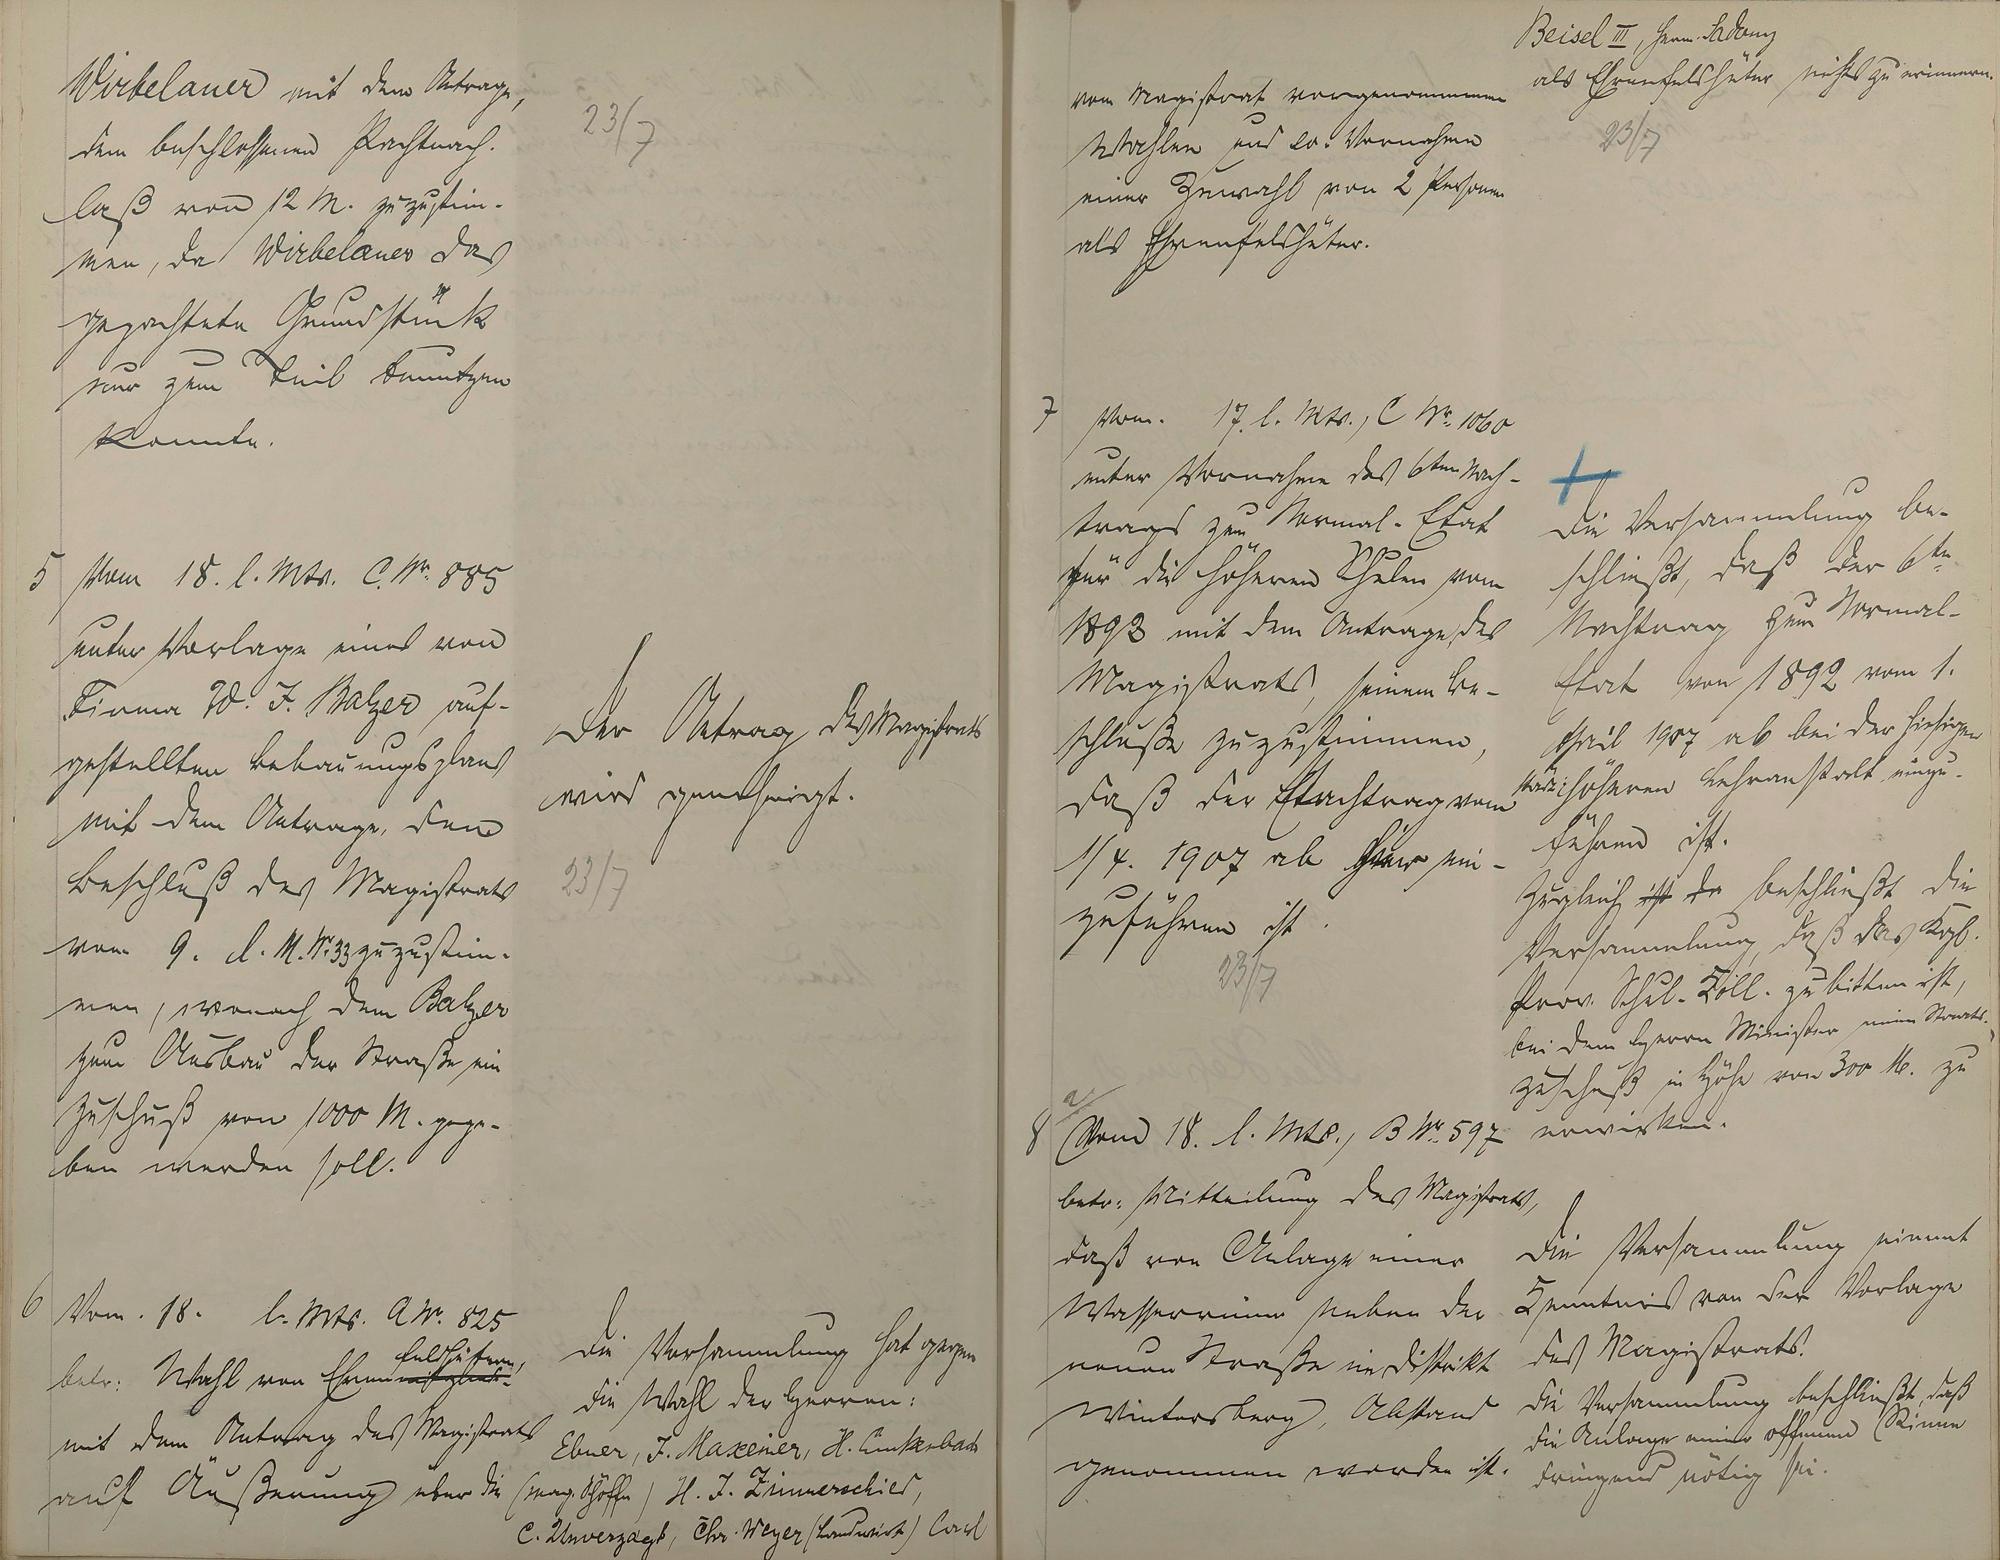 Wirbelauer mit dem Antrage,
dem beschlossenen Pachtnach-
laß von 12 M. zuzustim-
men, da Wirbelauer das
gepachtete Grundstück
nur zum Teil benutzen
konnte.
23/7
5 Vom 18. l. Mts. C. Nr. 885
unter Vorlage eines von
Firma W. J. Balzer auf-
gestellten Bebauungsplans
mit dem Antrage, dem
Beschluß des Magistrats
vom 9. d. M. Nr. 33 zuzustim-
men, wonach dem Balzer
zum Ausbau der Straße ein
Zuschuß von 1000 M. gege-
ben werden soll.
Der Antrag des Magistrats
wird genehmigt.
23/7
6 Vom 18. l. Mts. A Nr. 825
betr: Wahl von Ehrenfeldhütern,
mit dem Antrag des Magistrats
auf Äußerung über die
Die Versammlung hat gegen
die Wahl der Herren:
Ebner, J. Maxeiner, H. Linkenbach
(Mag. Schöffe) H. J. Zimmerschied,
C. Unverzagt, Chr. Meyer (Landwirt) Carl
vom Magistrat vorgenommenen
Wahlen und ev: Vornahme
einer Zuwahl von 2 Personen
als Ehrenfeldhüter.
Beisel III, Herm. Sadony
als Ehrenfeldhüter nichts zu erinnern.
23/7
7 Vom 17. l. Mts., C Nr. 1060
unter Vornahme des 6ten Nach-
trags zum Normal-Etat
für die höheren Schulen vom
1892 mit dem Antrage des
Magistrats, seinem Be-
schluße zuzustimmen,
daß der Nachtrag vom
1/4. 1907 ab hier ein-
zuführen ist.
23/7
Die Versammlung be-
schließt, daß der 6te
Nachtrag zum Normal-
Etat von 1892 vom 1.
April 1907 ab bei der hiesigen
höheren Lehranstalt einzu-
führen ist.
Zugleich beschließt die
Versammlung, daß das Kgl.
Prov. Schul-Koll. zu bitten ist,
bei dem Herrn Minister einen Staats-
zuschuß in Höhe von 300 M. zu
erwirken.
a/
8 Vom 18. l. Mts., B Nr. 597
betr: Mitteilung des Magistrats,
daß von Anlage einer
Wasserrinne neben der
neuen Straße im Distrikt
Wintersberg, Abstand
genommen worden ist.
Die Versammlung nimmt
Kenntnis von der Vorlage
des Magistrats.
Die Versammlung beschließt, daß
die Anlage einer offenen Rinne
dringend nötig sei.